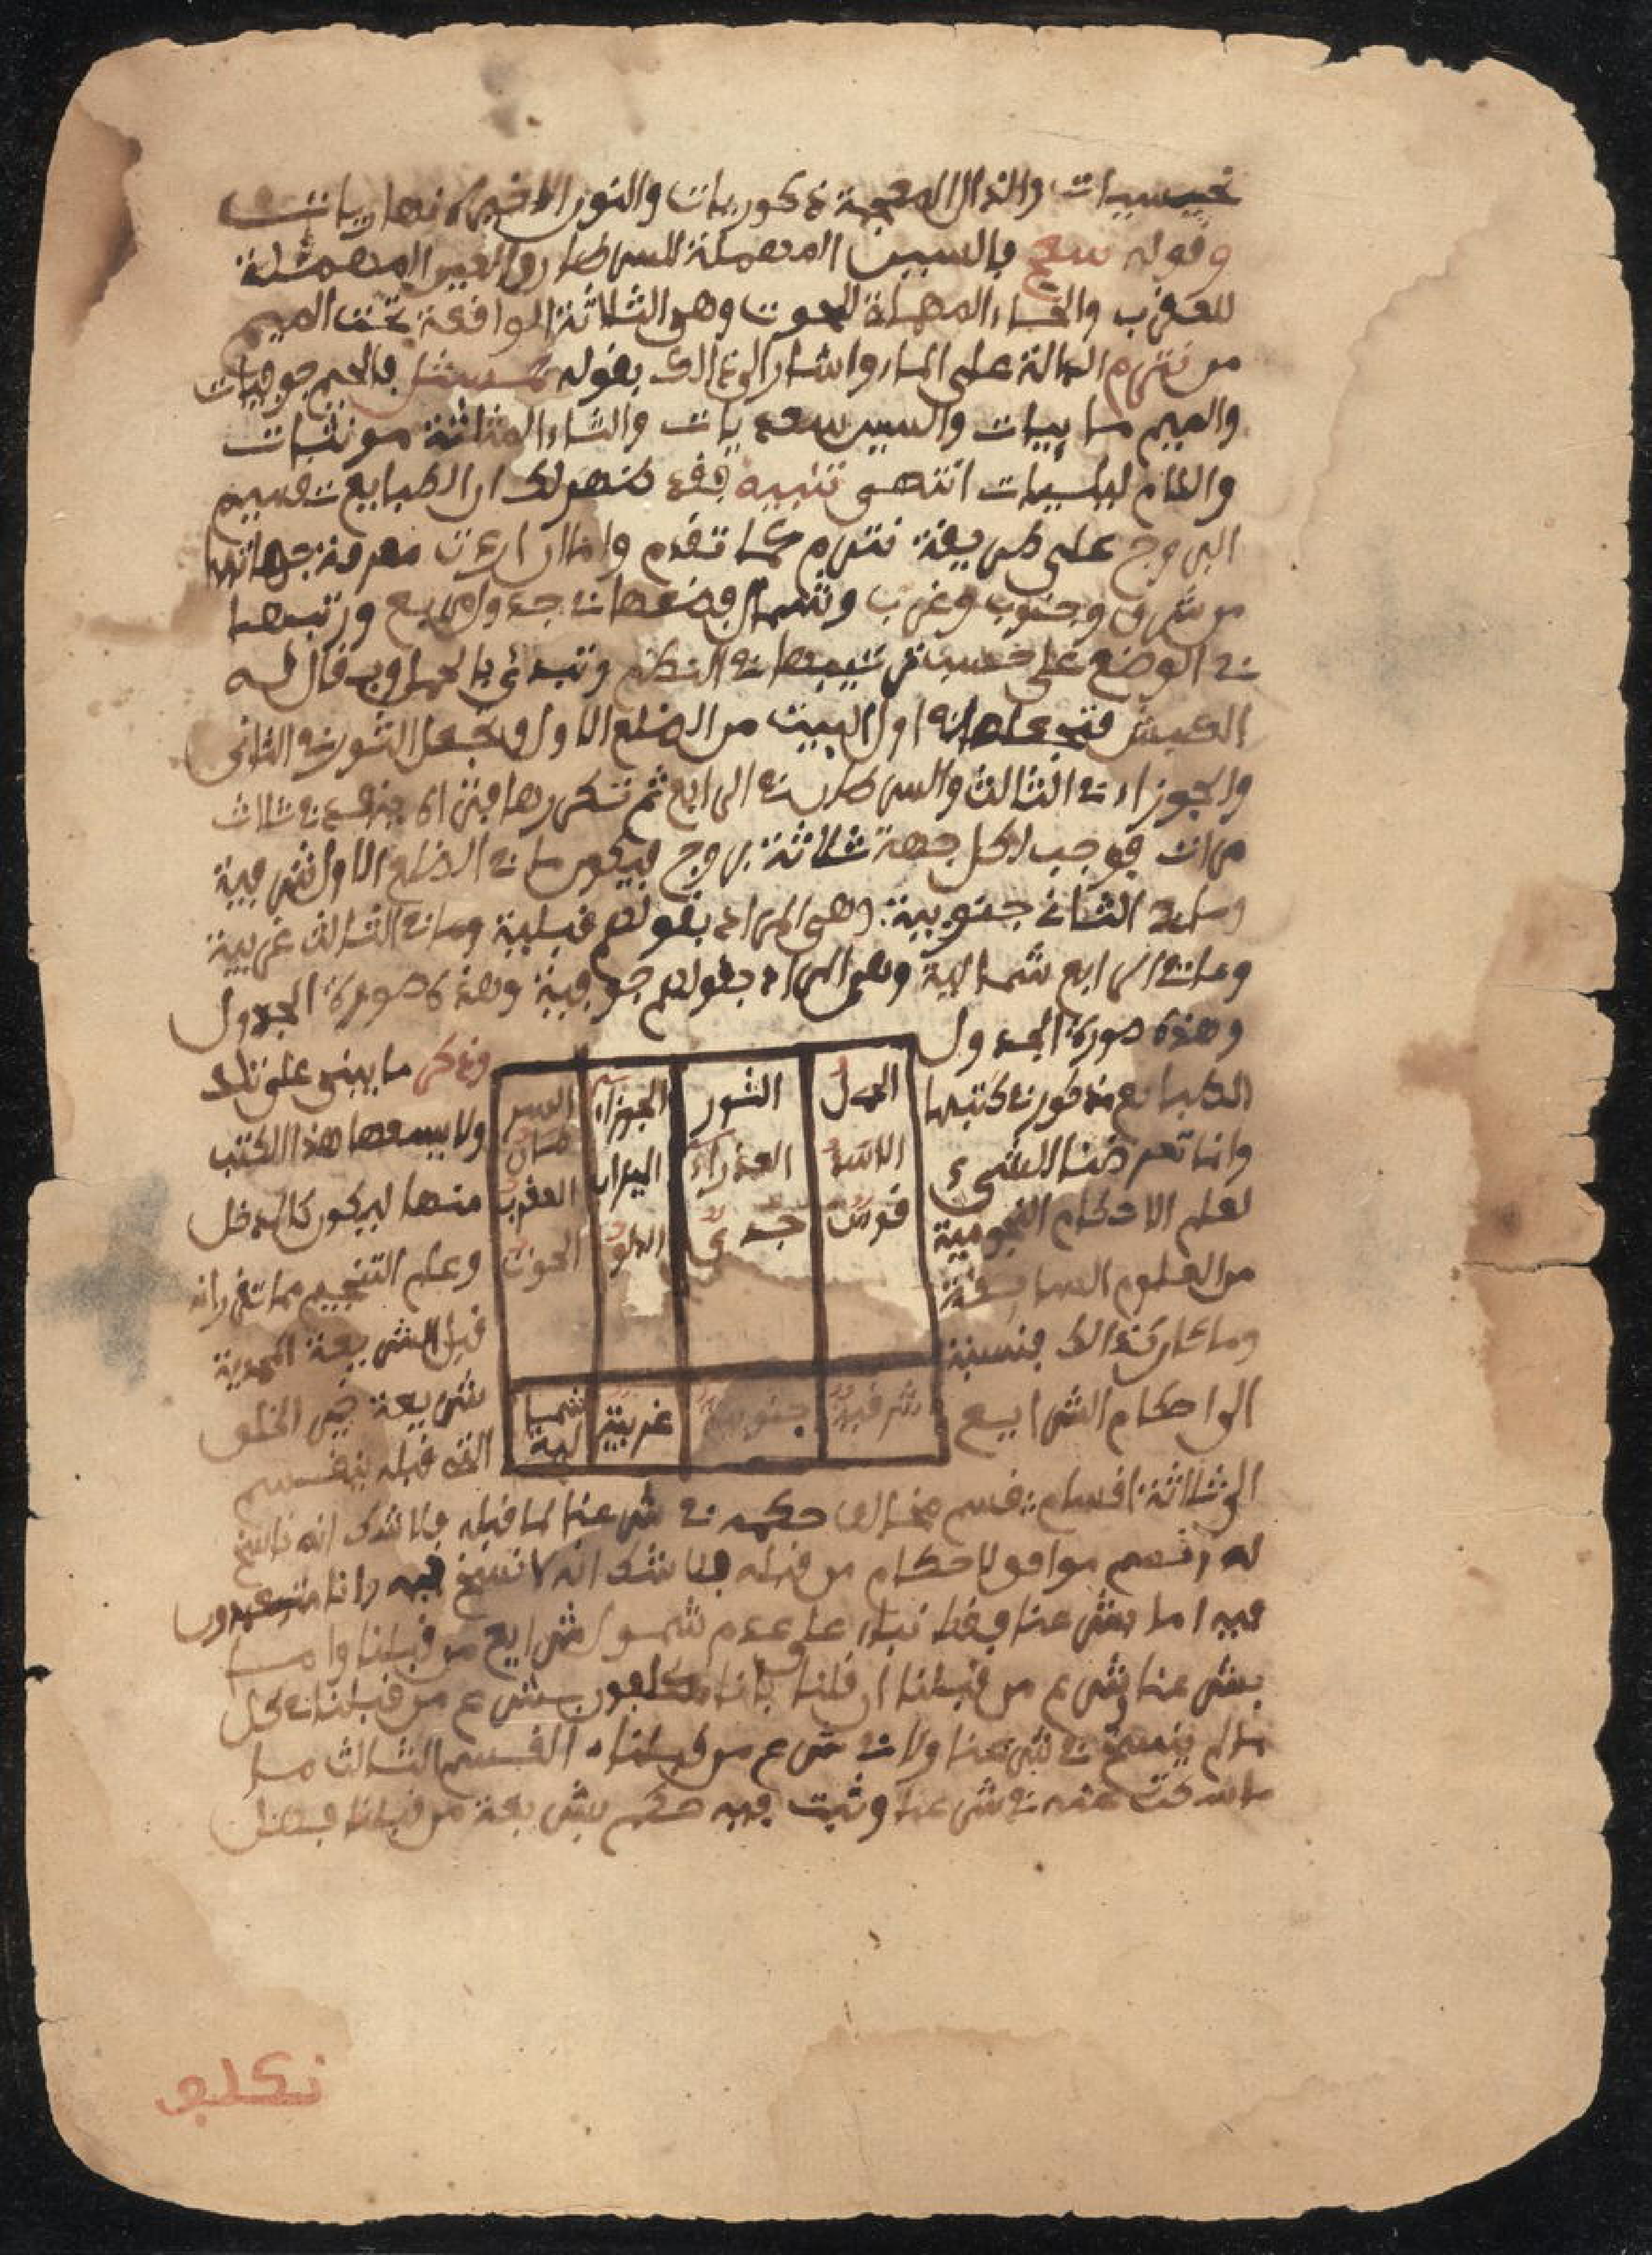 نحسيات والذال المعجمة ذكوريات والنون الاخيرة نهاريات
وقوله سعح فالسين المهملة للسرطان والعين المهملة
للعقرب والحاء المهملة للحوت وهي الثلاثة الواقعة تحت الميم
من نترم الدالة على الماء واشار الى ذالك بقوله فالجيم جوفيات
والميم مايييات والسين سعديات والثاء المثلثة مونثيات
واللام ليليات انتهى تنبيه فقد ظهر لك ان الطبايع تقسيم
البروج على طريقة نترم كما تقدم واما ان اردت معرفة جهاتها
من شرق وجنوب وغرب وشمال فضعها في جدول مربع ورتبها
في الوضع على حسب ترتيبها في النظم وتبدئ بالحمل ويقال له
الكبش فتجعله في اول البيت من الضلع الاول وتجعل الثور في الثاني
والجوزاء في الثالث والسرطان في الرابع ثم تكررها في ثلاث
مرات فوجب لكل جهة ثلاثة بروج فيكون ما في الضلع الاول شرقية
وما في الثاني جنوبية وهي المراد بقولهم قبلية وما في الثالث غربية
وما في الرابع شمالية وهي المراد بقولهم جوفية وهذه صورة الجدول
وهذه صورة الجدول
الحمل الثور الجوزاء السرطان
الاسد العذراء الميزان العقرب
قوس جدي الدلو الحوت
شرقية جنوبية غربية شمالية
وذكر ما يبنى على تلك
الطبايع مذكور في كتبها ولا يسعها هذا الكتب
وانما تعرضنا لشيء منها ليكون كالمدخل
لعلم الاحكام النجومية وعلم التنجيم مما تقرر انه
من العلوم السابقة قبل الشريعة المحمدية
وما كان كذالك فنسبة شريعة خير الخلق
الى احكام الشرايع التي قبله ينقسم
الى ثلاثة اقسام قسم مخالف حكمه في شرعنا لما قبله فلا شك انه ناسخ
له وقسم موافق لاحكام من قبله فلا شك انه لا نسخ فيه وانا متعبدون
فيه اما بشرعنا فقط بناء على عدم شمول شرايع من قبلنا واما
بشرعنا وشرع من قبلنا ان قلنا بانا مكلفون بشرع من قبلنا في كل
ما لم ينسخ في شرعنا ولا في شرع من قبلنا القسم الثالث ما
ما سكت عنه في شرعنا وثبت فيه حكم بشريعة من قبلنا فهل
نكلف